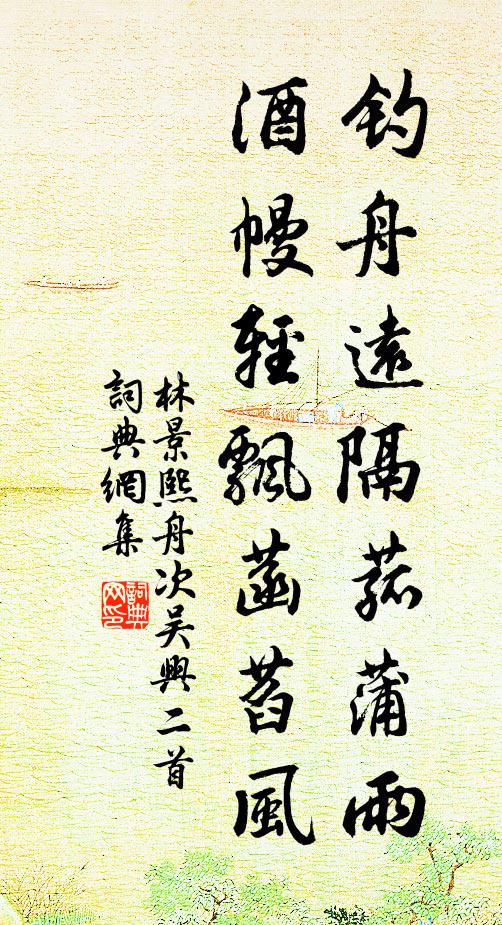 釣舟遠隔菰蒲雨
酒幔輕飄菡萏風
林景熙舟次吳興二首
詞典網集
詞典网印